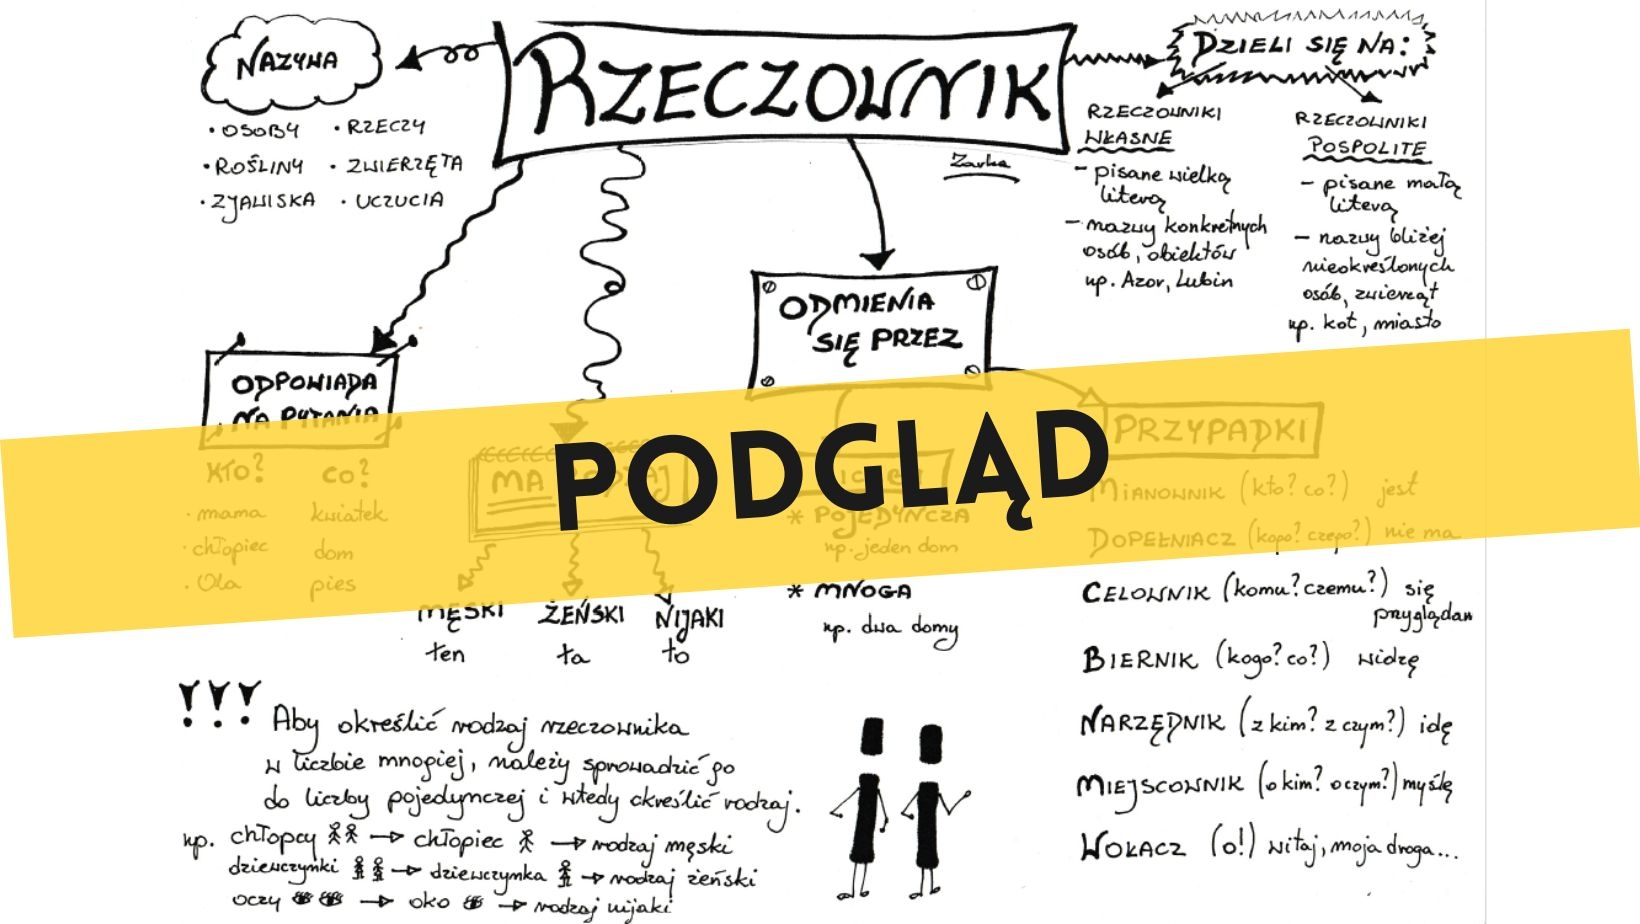 RZECZOWNIK
NAZYWA
• OSOBY • RZECZY
• ROŚLINY • ZWIERZĘTA
• ZJAWISKA • UCZUCIA
DZIELI SIĘ NA:
RZECZOWNIKI
WŁASNE
– pisane wielką
literą
– nazwy konkretnych
osób, obiektów
np. Azor, Lubin
RZECZOWNIKI
POSPOLITE
– pisane małą
literą
– nazwy bliżej
nieokreślonych
osób, zwierząt
np. kot, miasto
ODPOWIADA
NA PYTANIA
KTO? CO?
• mama kwiatek
• chłopiec dom
• Ola pies
MA RODZAJ
MĘSKI ŻEŃSKI NIJAKI
ten ta to
ODMIENIA
SIĘ PRZEZ
* POJEDYNCZA
np. jeden dom
* MNOGA
np. dwa domy
PRZYPADKI
MIANOWNIK (kto? co?) jest
DOPEŁNIACZ (kogo? czego?) nie ma
CELOWNIK (komu? czemu?) się
przyglądam
BIERNIK (kogo? co?) widzę
NARZĘDNIK (z kim? z czym?) idę
MIEJSCOWNIK (o kim? o czym?) myślę
WOŁACZ (o!) witaj, moja droga...
PODGLĄD
!!! Aby określić rodzaj rzeczownika
w liczbie mnogiej, należy sprowadzić go
do liczby pojedynczej i wtedy określić rodzaj.
np. chłopcy → chłopiec → rodzaj męski
dziewczynki → dziewczynka → rodzaj żeński
oczy → oko → rodzaj nijaki